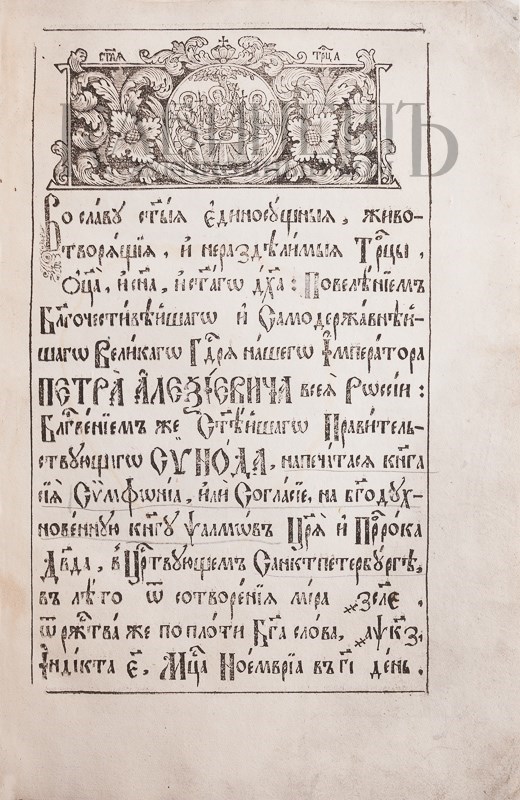 СТ҃АЯ ТРⷪ҇ЦА
БУКИНИСТЪ
Во славу ст҃ы́ѧ є҆диносꙋ́щныѧ, живо-
творѧ́щїѧ, и҆ нераздѣли́мыѧ Трⷪ҇цы,
Ѻ҆ц҃а̀, и҆ сн҃а, и҆ ст҃а́гѡ дх҃а: Повелѣ́нїемъ
Бл҃гочести́вѣйшагѡ и҆ Самодержа́внѣй-
шагѡ Вели́кагѡ Гдⷭ҇рѧ на́шегѡ І҆мпера́тора
ПЕТРА̀ А҆ЛЕѮІ́ЕВИЧА всеѧ̀ Рѡссі́и:
Бл҃гвⷭ҇е́нїемъ же Ст҃ѣ́йшагѡ Прави́тель-
ствꙋющагѡ СѴНО́ДА, напеча́тасѧ кни́га
сїѧ̀ Сѷмфѡ́нїа, и҆лѝ Согла́сїе, на бг҃одꙋх-
нове́ннꙋю кни́гꙋ ѱалмѡ́въ Цр҃ѧ̀ и҆ Прⷪ҇ро́ка
Дв҃да, в̾ Црⷭ҇твꙋющемъ Санктпетербꙋ́ргѣ,
въ лѣ́то ѿ сотворе́нїѧ мі́ра ҂зсл҃є,
ѿ ржⷭ҇тва́ же по пло́ти Бг҃а сло́ва, ҂аѱк҃з,
І҆нді́кта є҃, Мцⷭ҇а Ное́мврїа въ г҃і де́нь.